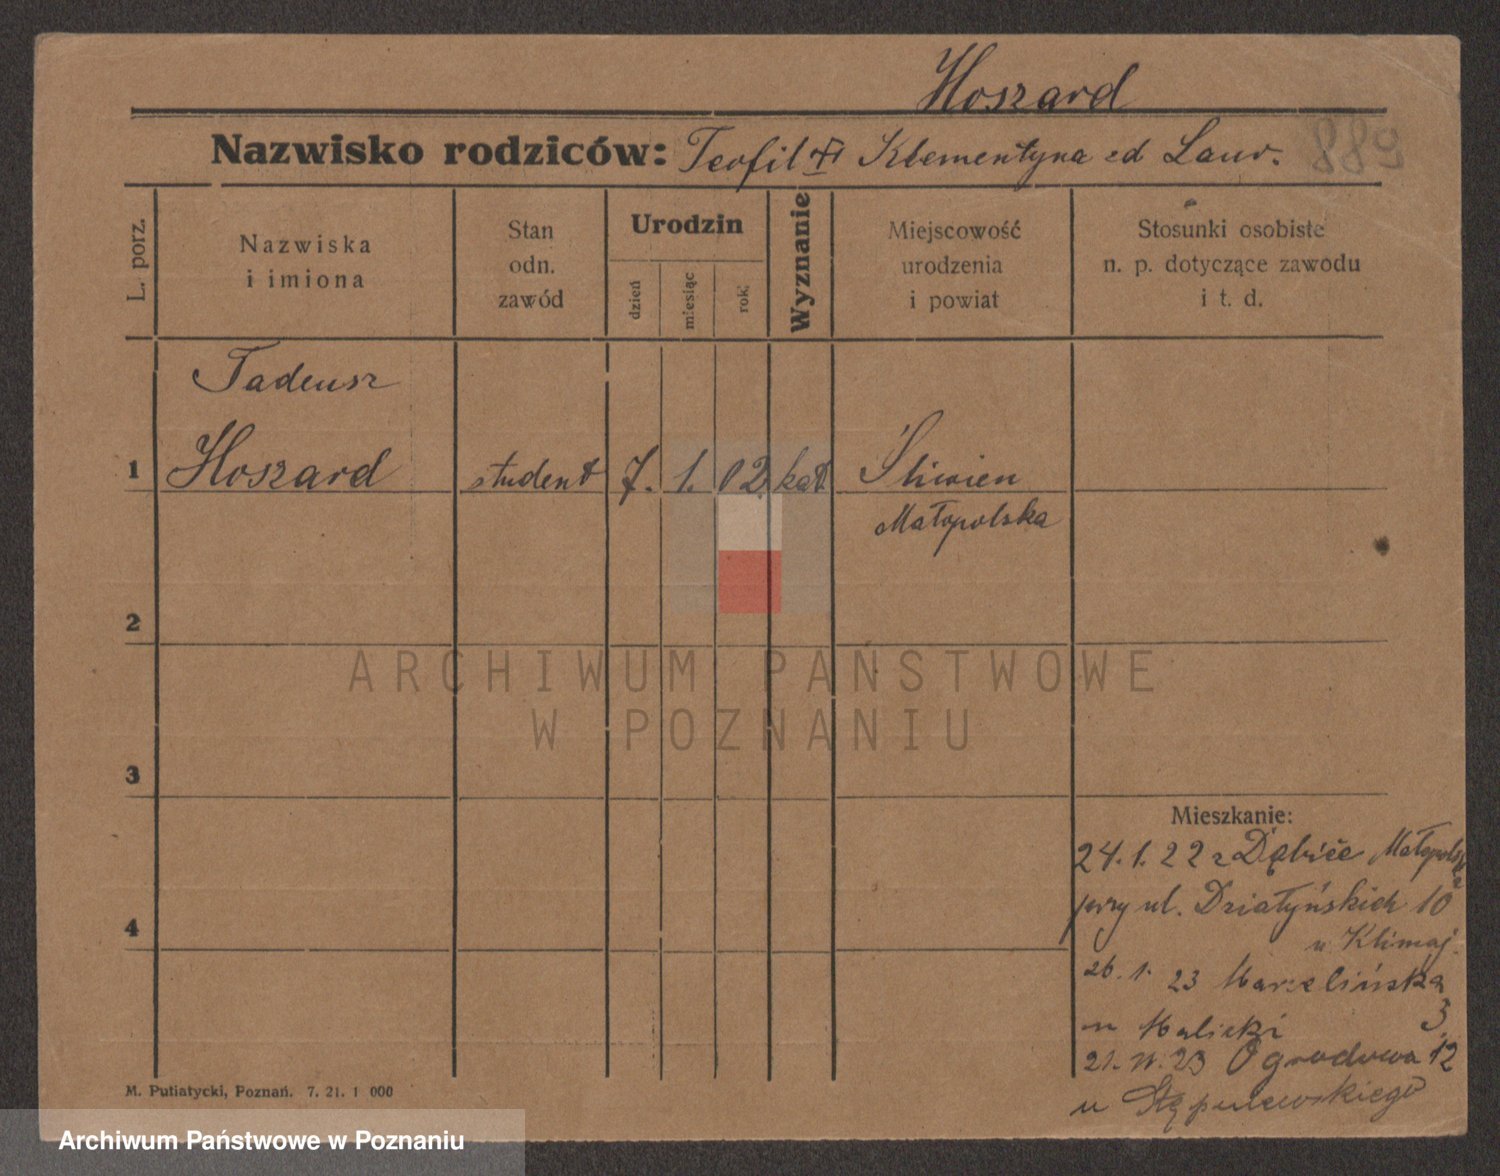 Hoszard
Nazwisko rodziców: Teofil Klementyna
889
L. porz.
Nazwiska
i imiona
Stan
odn.
zawód
Urodzin
dzień
miesiąc
rok
Wyznanie
Miejscowość
urodzenia
i powiat
Stosunki osobiste
n. p. dotyczące zawodu
i t. d.
Tadeusz
1 Hoszard student 7. 1. 02 kat
Małopolska
2
3
4
ARCHIWUM PAŃSTWOWE
W POZNANIU
Mieszkanie:
24. 1. 22 z Małopolska
przy ul. Działyńskich 10
u Klimaj.
26. 1. 23 Marcelińska
3.
23 Ogrodowa 12
u
M. Putiatycki, Poznań. 7. 21. 1 000
Archiwum Państwowe w Poznaniu